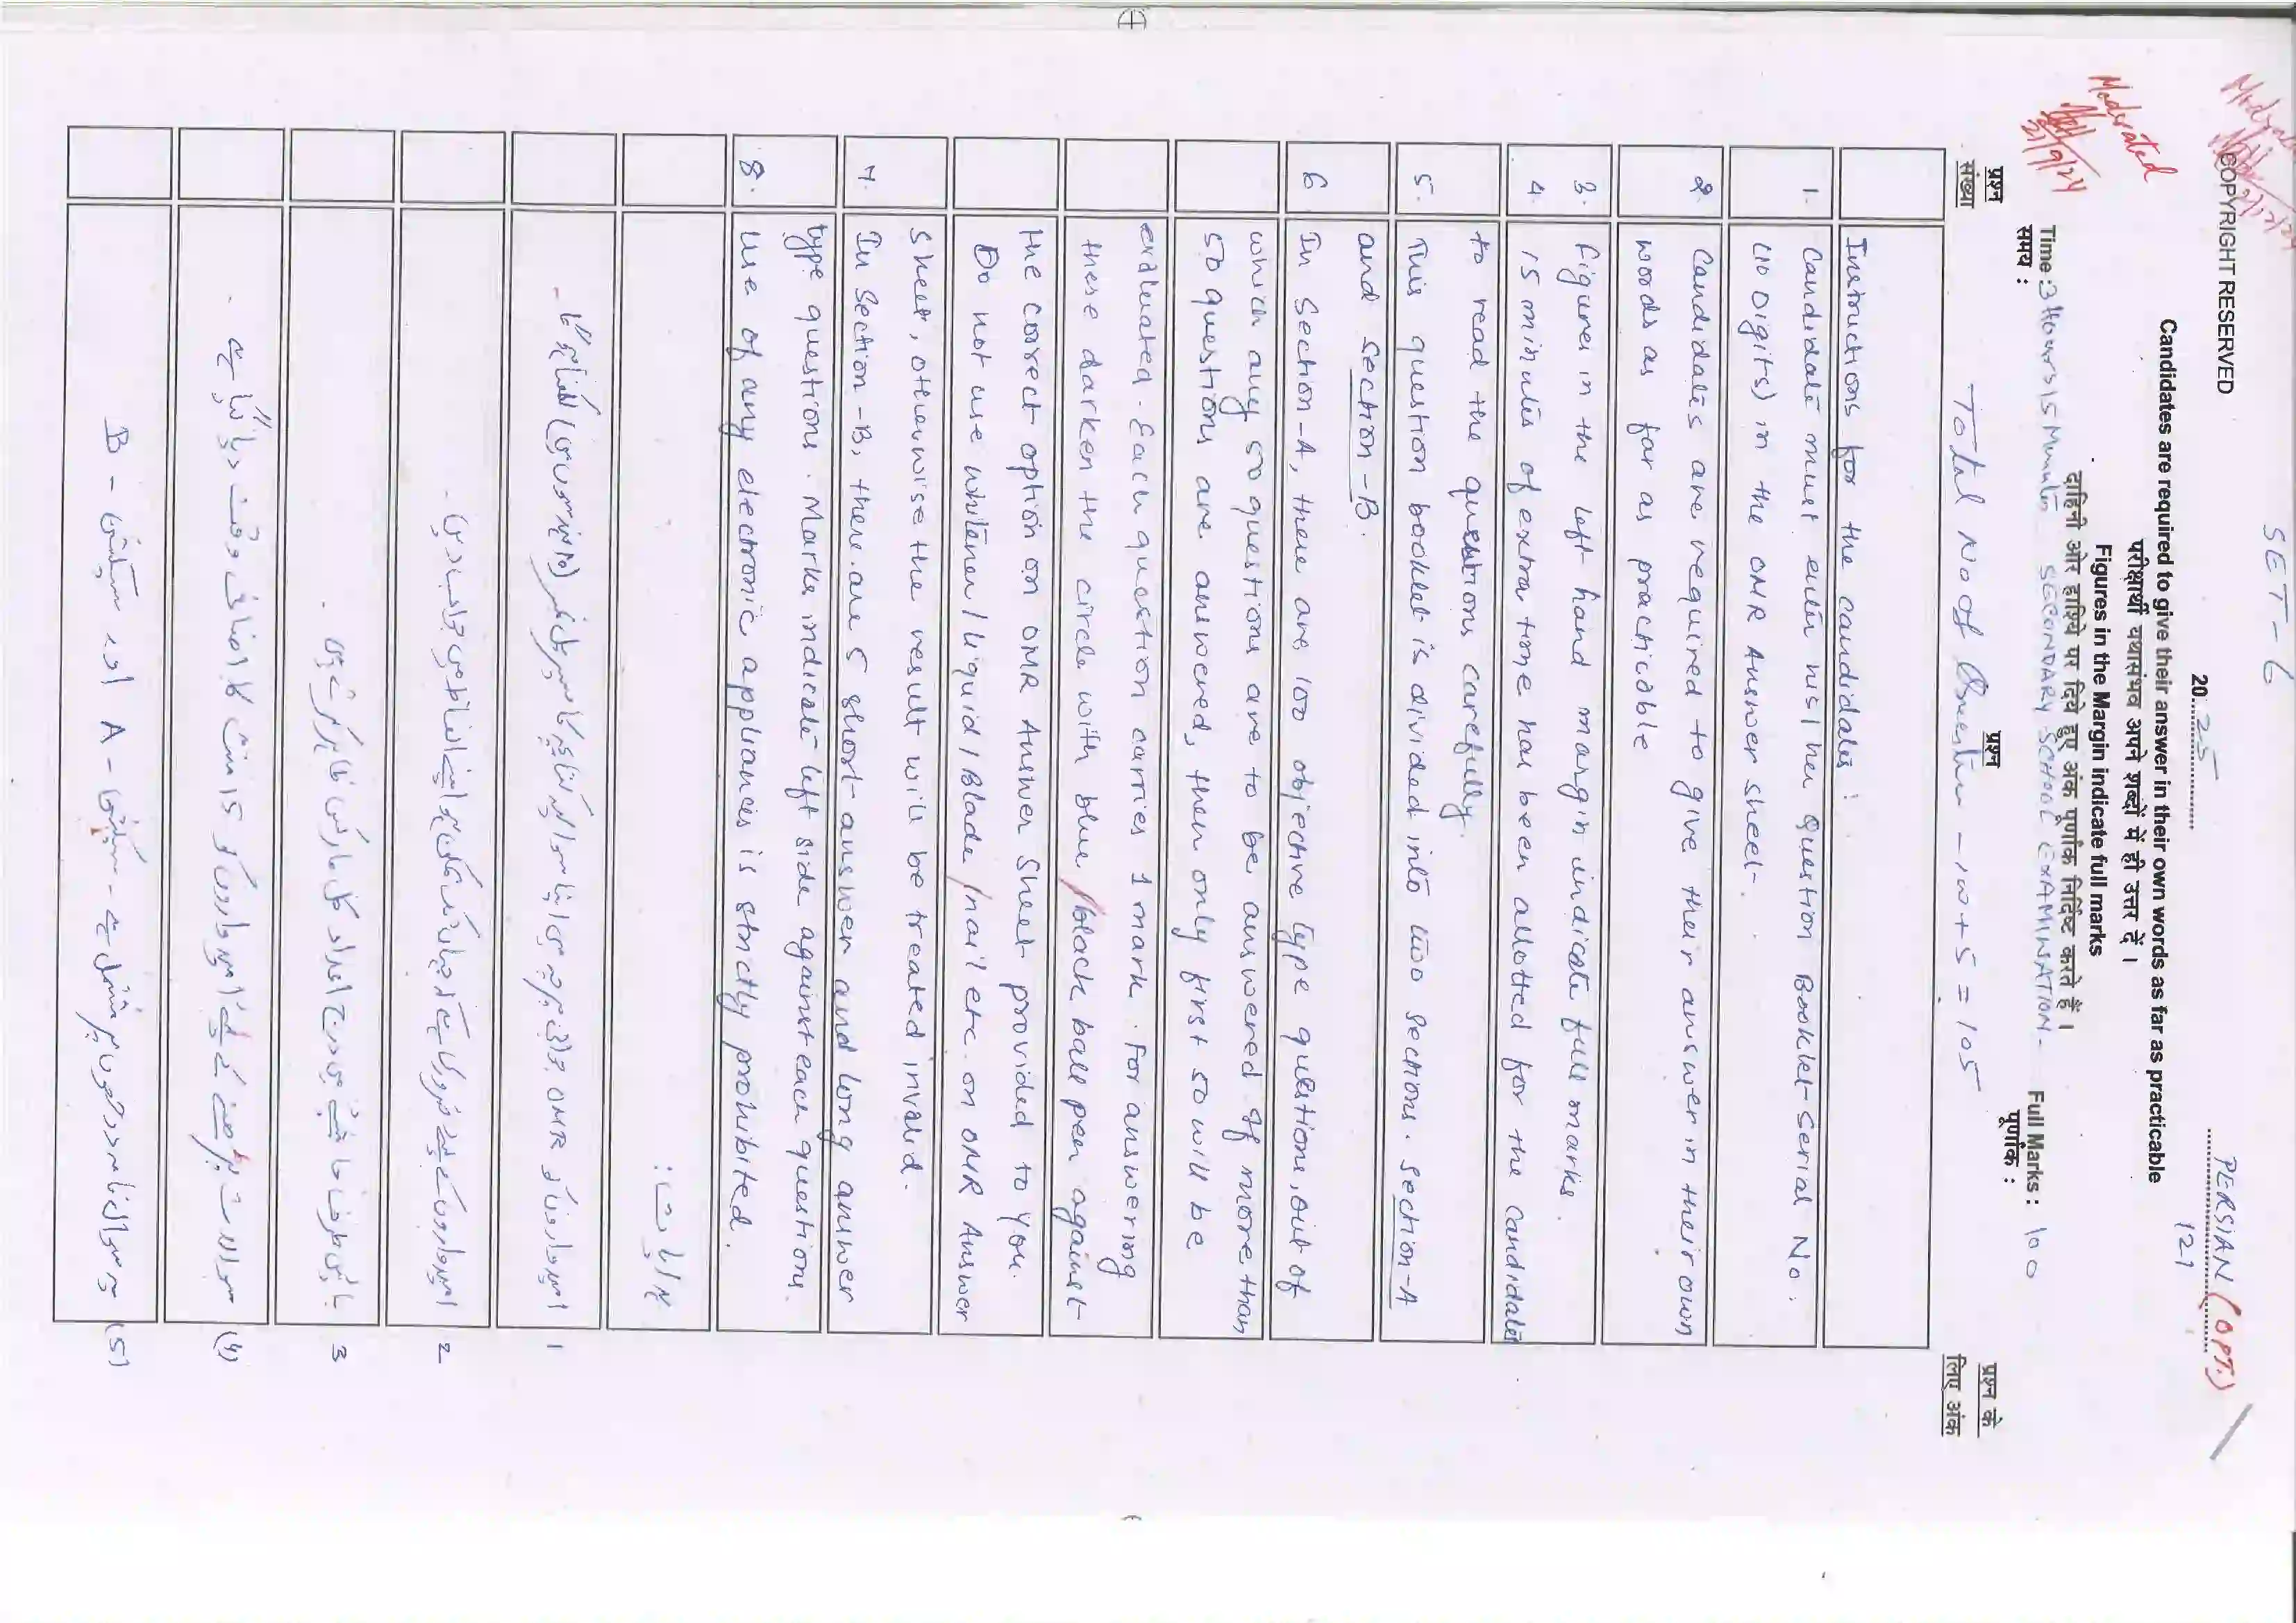 SET-6
COPYRIGHT RESERVED
20 25
PERSIAN (OPT.)
121
Candidates are required to give their answer in their own words as far as practicable
परीक्षार्थी यथासंभव अपने शब्दों में ही उत्तर दें ।
Figures in the Margin indicate full marks
दाहिनी ओर हाशिये पर दिये हुए अंक पूर्णांक निर्दिष्ट करते हैं ।
Moderated
21/9/24
Time : 3 Hours 15 Minutes SECONDARY SCHOOL EXAMINATION - Full Marks : 100
समय : पूर्णांक :
प्रश्न संख्या प्रश्न प्रश्न के लिए अंक
Total No of Question - 100 + 5 = 105
Instructions for the candidates :
1. Candidate must enter his/her Question Booklet Serial No.
(10 Digits) in the OMR Answer Sheet.
2. Candidates are required to give their answer in their own
words as far as practicable
3. Figures in the left hand margin indicate full marks.
4. 15 minutes of extra time has been allotted for the candidates
to read the questions carefully.
5. This question booklet is divided into two sections. Section-A
and Section-B.
6 In Section-A, there are 100 objective type questions, out of
which any 50 questions are to be answered If more than
50 questions are answered, then only first 50 will be
evaluated. Each question carries 1 mark. For answering
these darken the circle with blue/black ball pen against
the correct option on OMR Answer Sheet provided to you.
Do not use whitener/liquid/Blade/nail etc. on OMR Answer
Sheet, otherwise the result will be treated invalid.
7. In Section-B, there are 5 short answer and long answer
type questions. Marks indicate left side against each questions.
8. Use of any electronic appliances is strictly prohibited.
ہدایات :
1 امیدواروں کو OMR جوابی پرچہ میں اپنا سوالیہ کتابچہ کا سیریل نمبر (10 ہندسوں میں) لکھنا ہوگا -
2 امیدواروں کے لئے ضروری ہے کہ جہاں تک ممکن ہو اپنے الفاظ میں جواب دیں -
3 بائیں طرف حاشئے میں درج اعداد کل مارکس ظاہر کرتے ہیں
(4) سوالات پڑھنے کے لئے امیدواروں کو 15 منٹ کا اضافی وقت دیا گیا ہے
(5) یہ سوالنامہ دو حصوں پر مشتمل ہے - سیکشن - A اور سیکشن - B